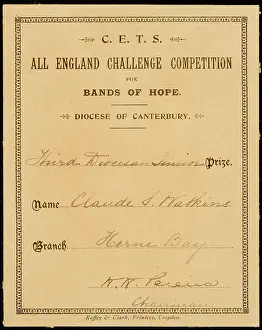 C. E. T. S.
ALL ENGLAND CHALLENGE COMPETITION
FOR
BANDS OF HOPE.
DIOCESE OF CANTERBURY.
Third Diocesan Senior Prize.
Name Claude S. Watkins
Branch Herne Bay
Chairman
Keffey & Clark, Printers, Croydon.